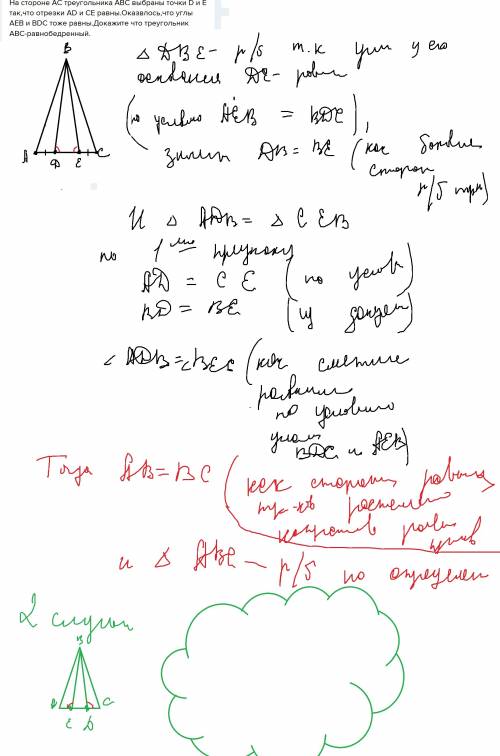 На стороне АС треугольника АВС выбраны точки D и Е
так,что отрезки AD и СЕ равны.Оказвлось,что углы
АЕВ и BDC тоже равны.Докажите что треугольник
АВС-равнобедренный.
△ DBE - р/б т.к углы у его
основания DE - равны
(по условию AEB = BDC),
значит DB = BE (как боковые
сторон
р/б
B
A
D
E
C
И △ ADB = △ CEB
по 1
AD = CE (по услов)
BD = BE (из
∠ ADB = ∠ BEC (как смежные
равными
по условию
углам
BDC и AEB)
Тогда AB = BC (как стороны равных
тр-ков
напротив равных
углов
и △ ABC - р/б по определен
2 случай
B
E
D
C